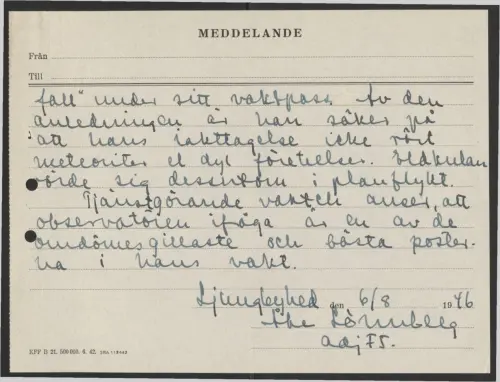 MEDDELANDE
Från
Till
fall" under sitt vaktpass. Av den
anledningen är han säker på
att hans iakttagelse icke rört
meteoriter el dyl företeelser. Eldkulan
rörde sig dessutom i planflykt.
Tjänstgörande vaktch anser, att
observatören ifråga är en av de
omdömesgillaste och bästa poster-
na i hans vakt.
Ljungbyhed den 6/8 1946
Åke Lönnberg
adj F5.
KFF D 21. 500 000. 6. 42.